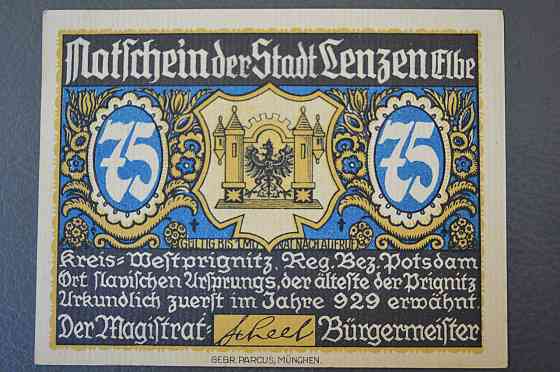 Notschein der Stadt Lenzen Elbe
75 75
GÜLTIG BIS 1 MONAT NACH AUFRUF
Kreis=Westprignitz. Reg. Bez. Potsdam
Ort slavischen Ursprungs, der älteste der Prignitz
Urkundlich zuerst im Jahre 929 erwähnt.
Der Magistrat: Scheel Bürgermeister
GEBR. PARCUS, MÜNCHEN.